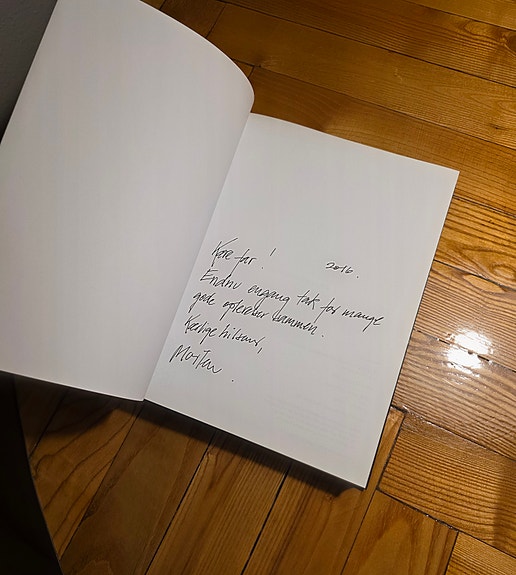 Kære far! 2016.
Endnu engang tak for mange
gode oplevelser sammen.
Kærlige hilsner,
Morten.